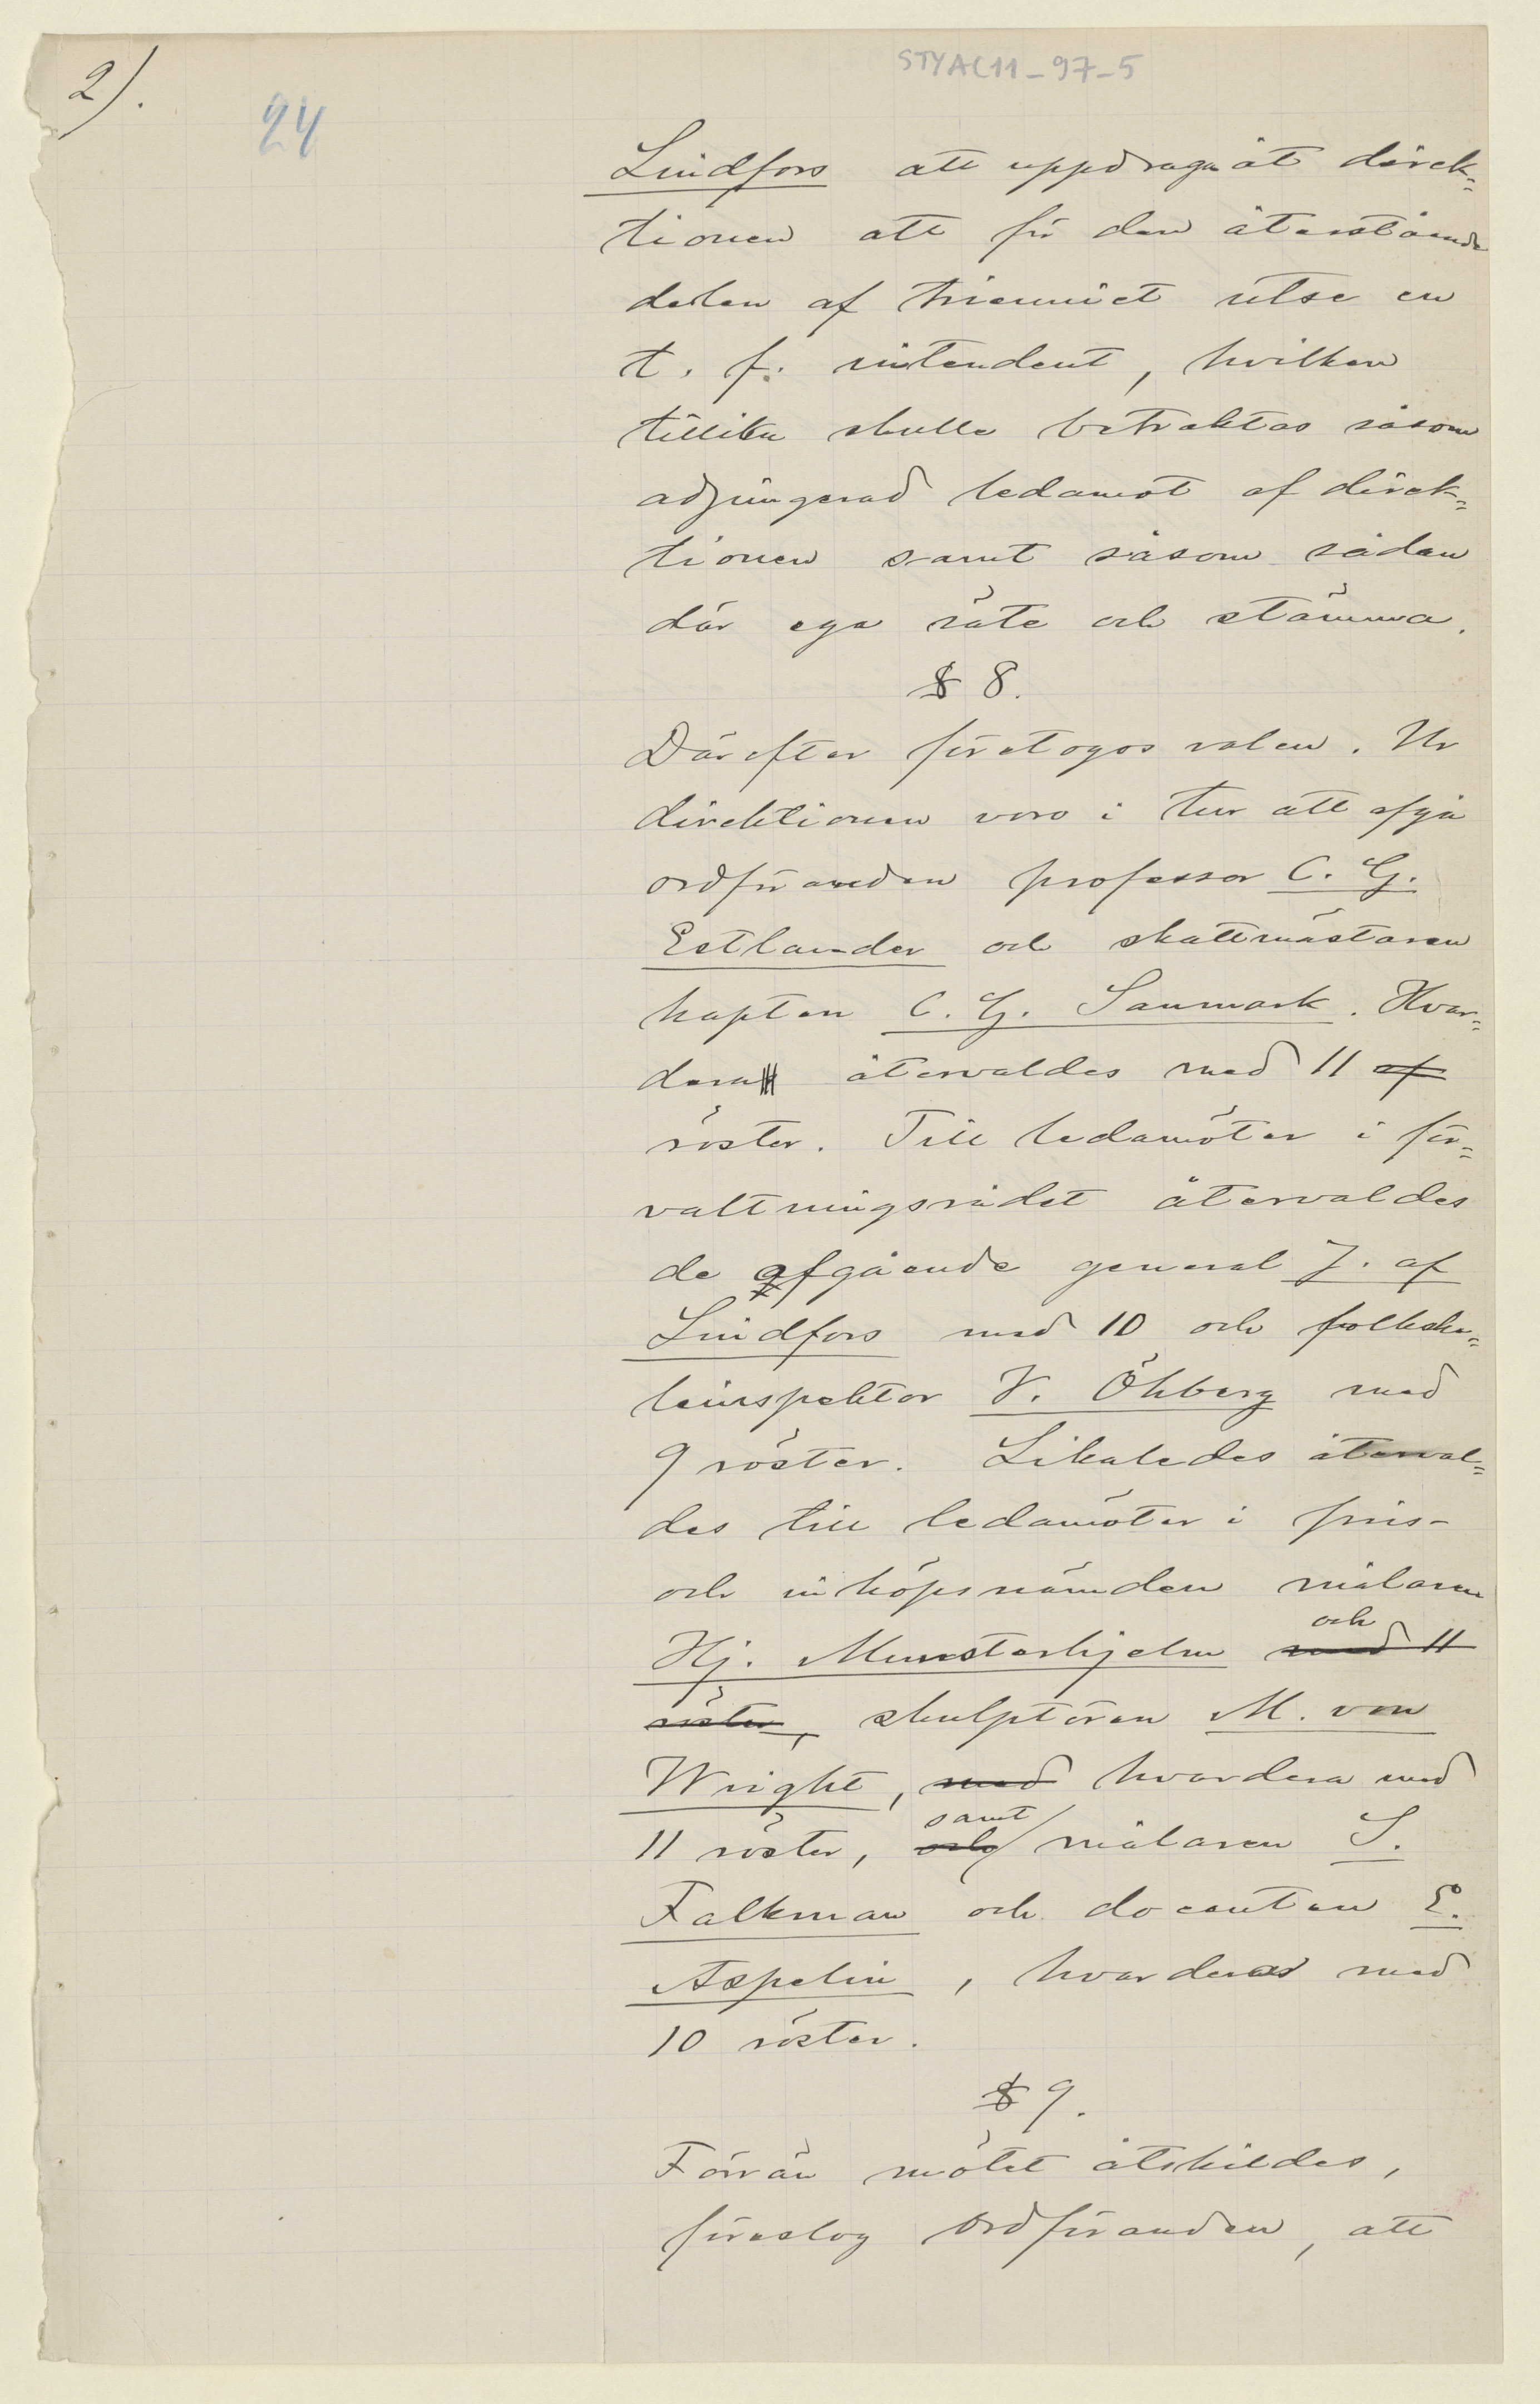 2).
24
STYAC11-97-5
Lindfors att uppdraga åt direk-
tionen att för den återstående
delen af trienniet utse en
t. f. intendent, hvilken
tillika skulle betraktas såsom
adjungerad ledamot af direk-
tionen samt såsom sådan
där ega säte och stämma.
§ 8.
Därefter företogos valen. Ur
direktionen voro i tur att afgå
ordföranden professor C. G.
Estlander och skattmästaren
kapten C. G. Sanmark. Hvar-
dera återvaldes med 11 af
röster. Till ledamöter i för-
valtningsrådet återvaldes
de afgående general J. af
Lindfors med 10 och folksko-
leinspektor V. Öhberg med
9 röster. Likaledes återval-
des till ledamöter i pris-
och inköpsnämnden målaren
Hj. Munsterhjelm med 11 och
röster, skulptören M. von
Wright, med hvardera med
11 röster, och samt målaren S.
Falkman och docenten E.
Aspelin, hvardera med
10 röster.
§ 9.
Förrän mötet åtskildes,
föreslog ordföranden, att